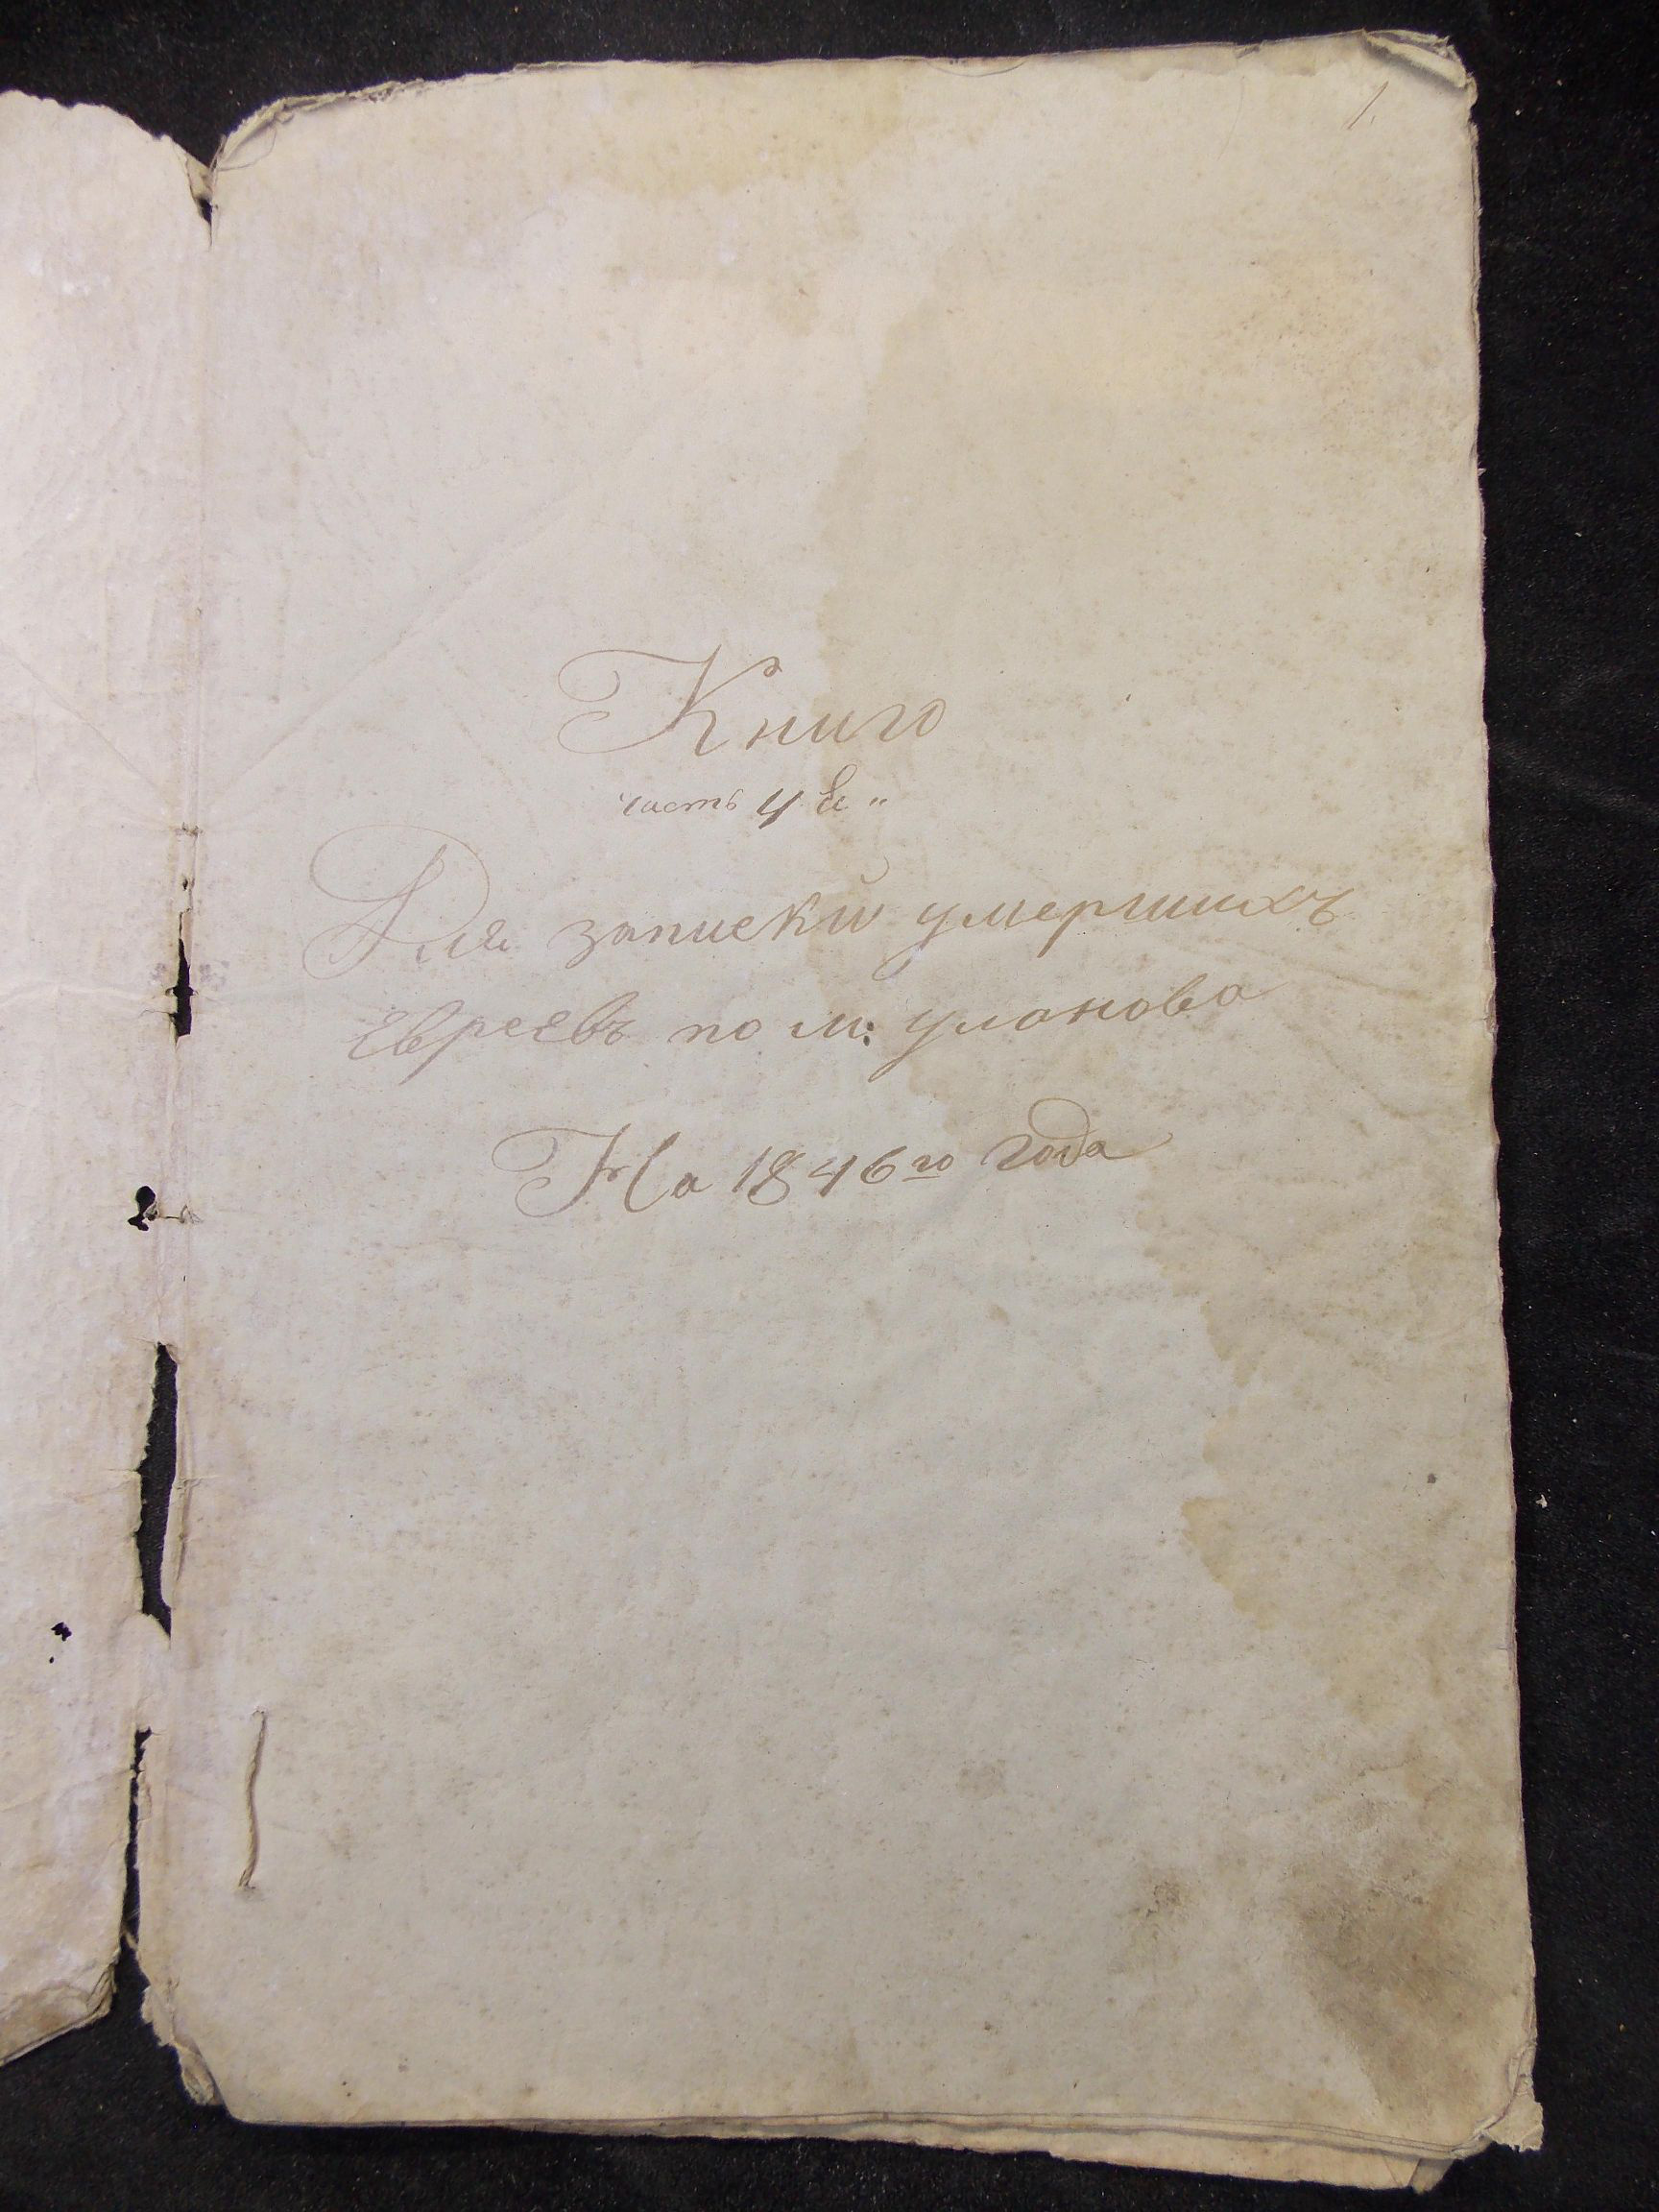 1.
Книга
часть 4 я„
Для записки умершихъ
Евреевъ по м: Уланова
На 1846го Года